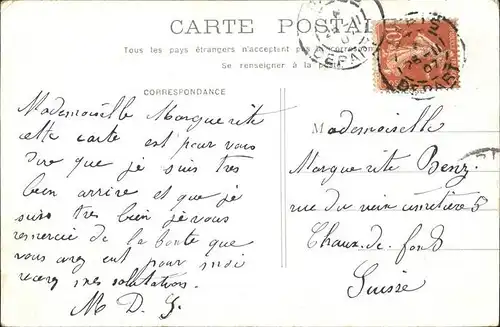 CARTE POSTALE
Tous les pays étrangers n'acceptent pas la correspon
Se renseigner à la poste
CORRESPONDANCE
Mademoiselle Marguerite
cette carte est pour vous
dire que je suis tres
bien arrive et que je
suis tres bien je vous
remercie de la bonte que
vous avez eut pour moi
recevez mes salutations.
M D. G.
Mademoiselle
Marguerite Benz
rue du vieux cimetière 5
Chaux-de-fond
Suisse
10
DEPART
25-11
07
DEPART